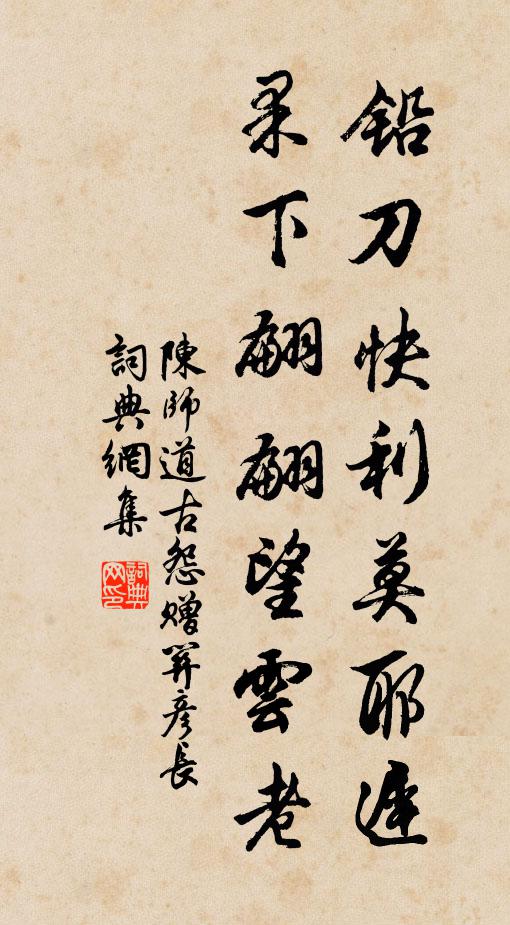 鉛刀快利莫耶遲
果下翩翩望雲老
陳師道古怨贈彥長
詞典網集
詞典
网印